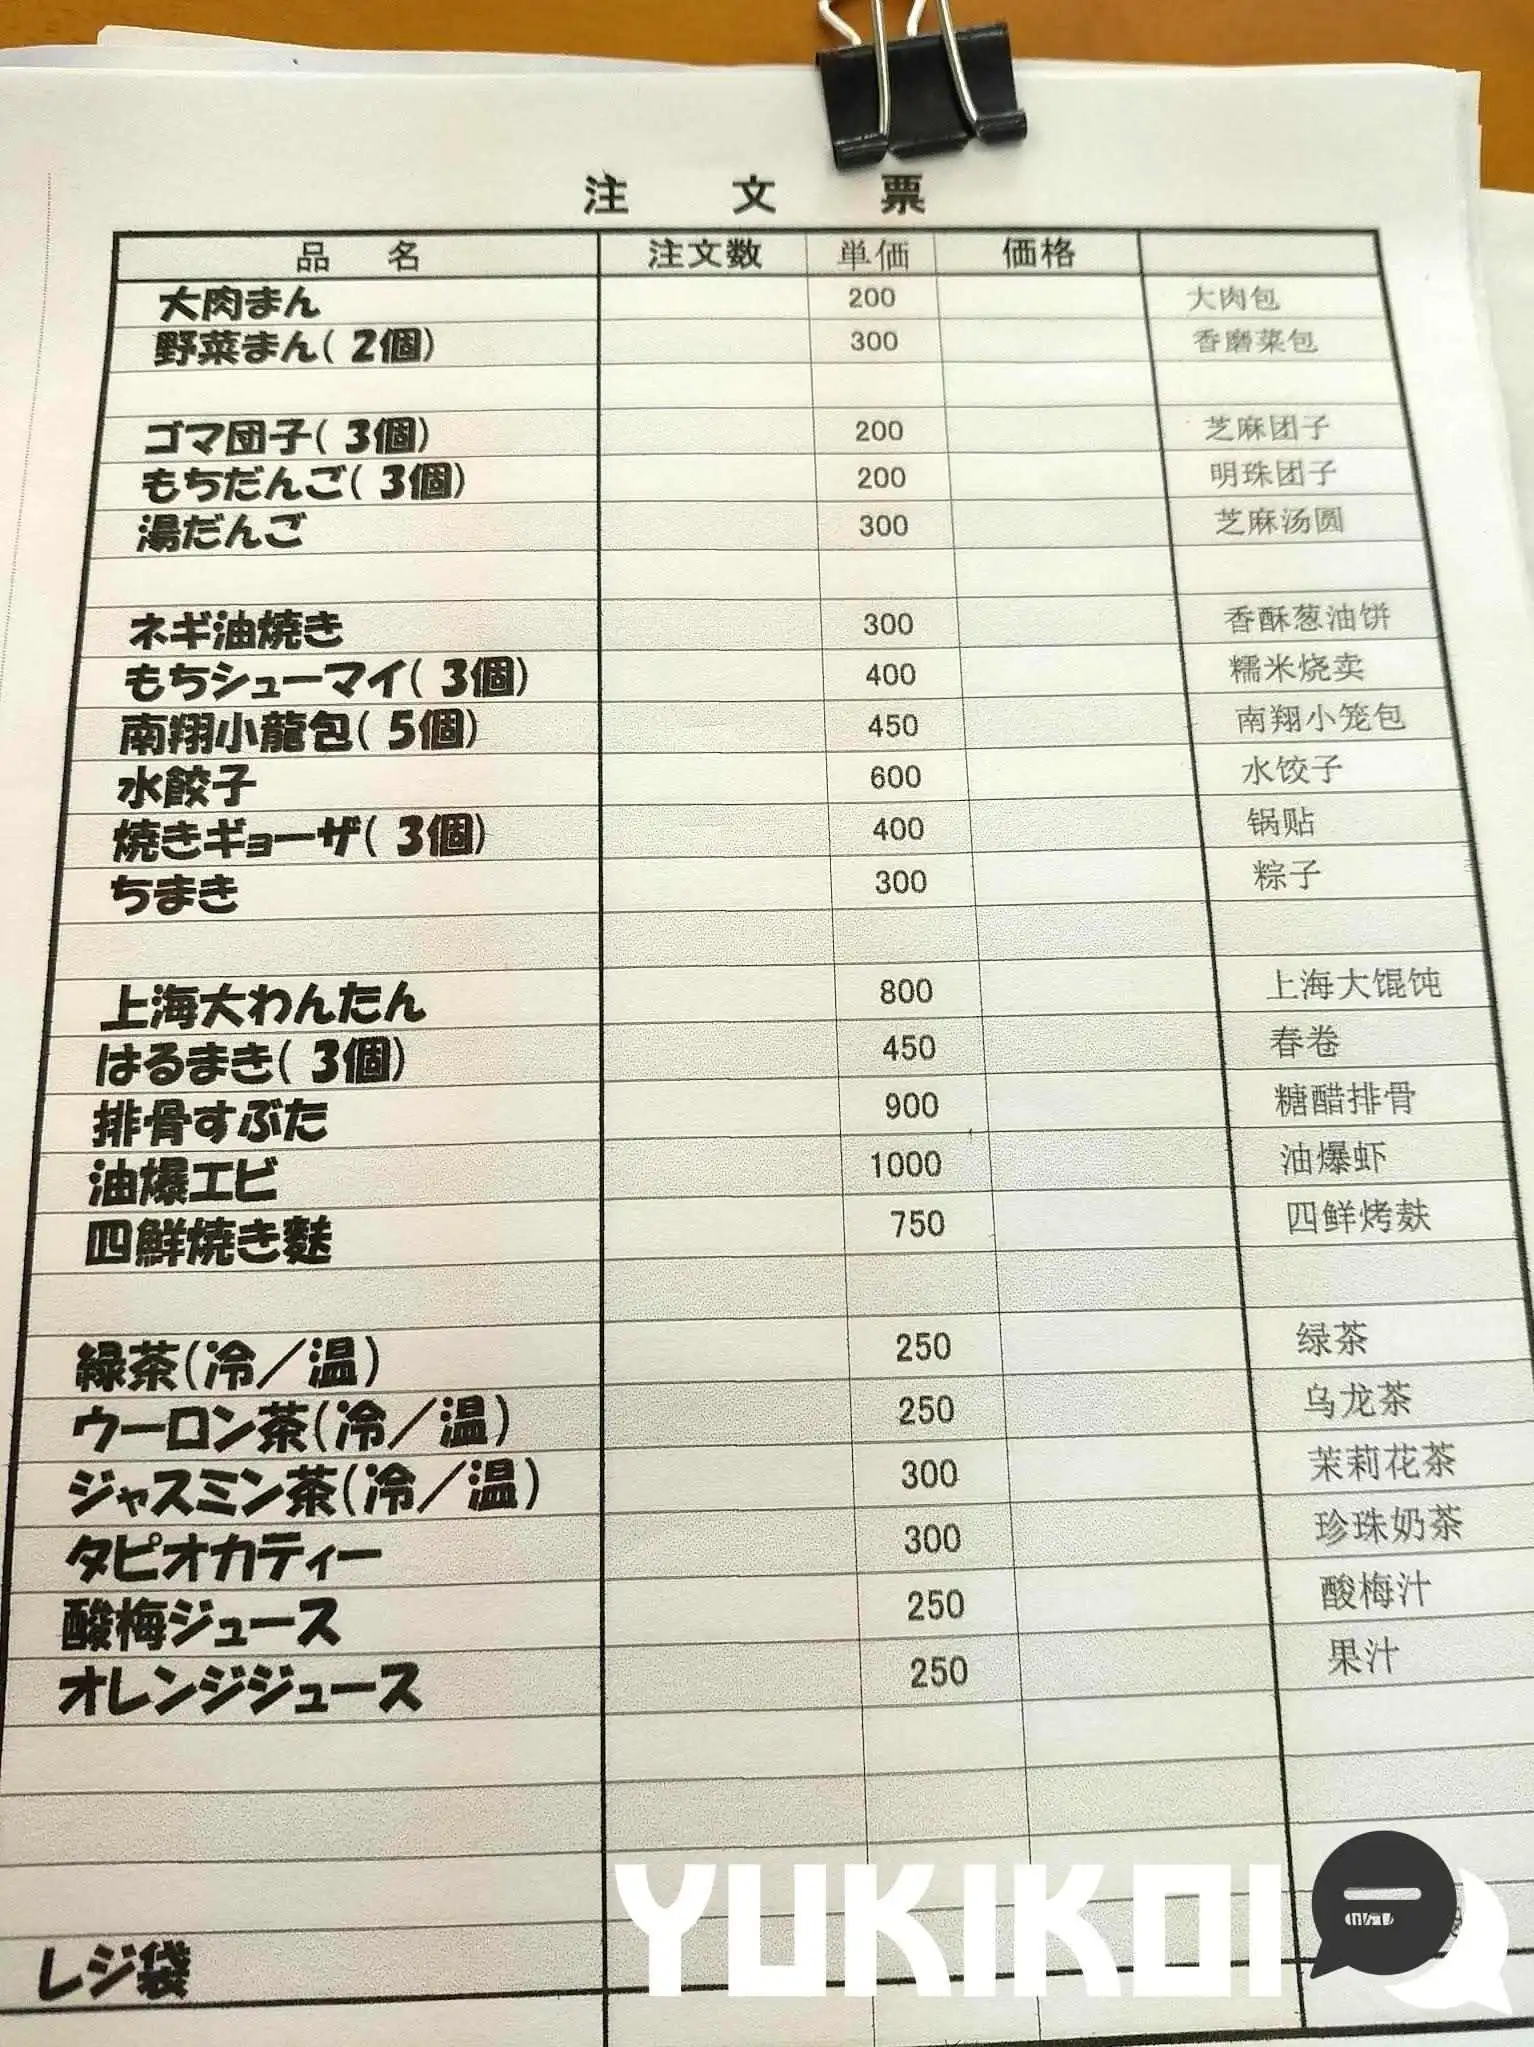 注 文 票
品 名 注文数 単価 価格
大肉まん 200 大肉包
野菜まん( 2個) 300 香磨菜包
ゴマ団子( 3個) 200 芝麻团子
もちだんご( 3個) 200 明珠团子
湯だんご 300 芝麻汤圆
ネギ油焼き 300 香酥葱油饼
もちシューマイ( 3個) 400 糯米烧卖
南翔小龍包( 5個) 450 南翔小笼包
水餃子 600 水饺子
焼きギョーザ( 3個) 400 锅贴
ちまき 300 粽子
上海大わんたん 800 上海大馄饨
はるまき( 3個) 450 春卷
排骨すぶた 900 糖醋排骨
油爆エビ 1000 油爆虾
四鮮焼き麩 750 四鲜烤麸
緑茶(冷／温) 250 绿茶
ウーロン茶(冷／温) 250 乌龙茶
ジャスミン茶(冷／温) 300 茉莉花茶
タピオカティー 300 珍珠奶茶
酸梅ジュース 250 酸梅汁
オレンジジュース 250 果汁
レジ袋
YUKIKOI